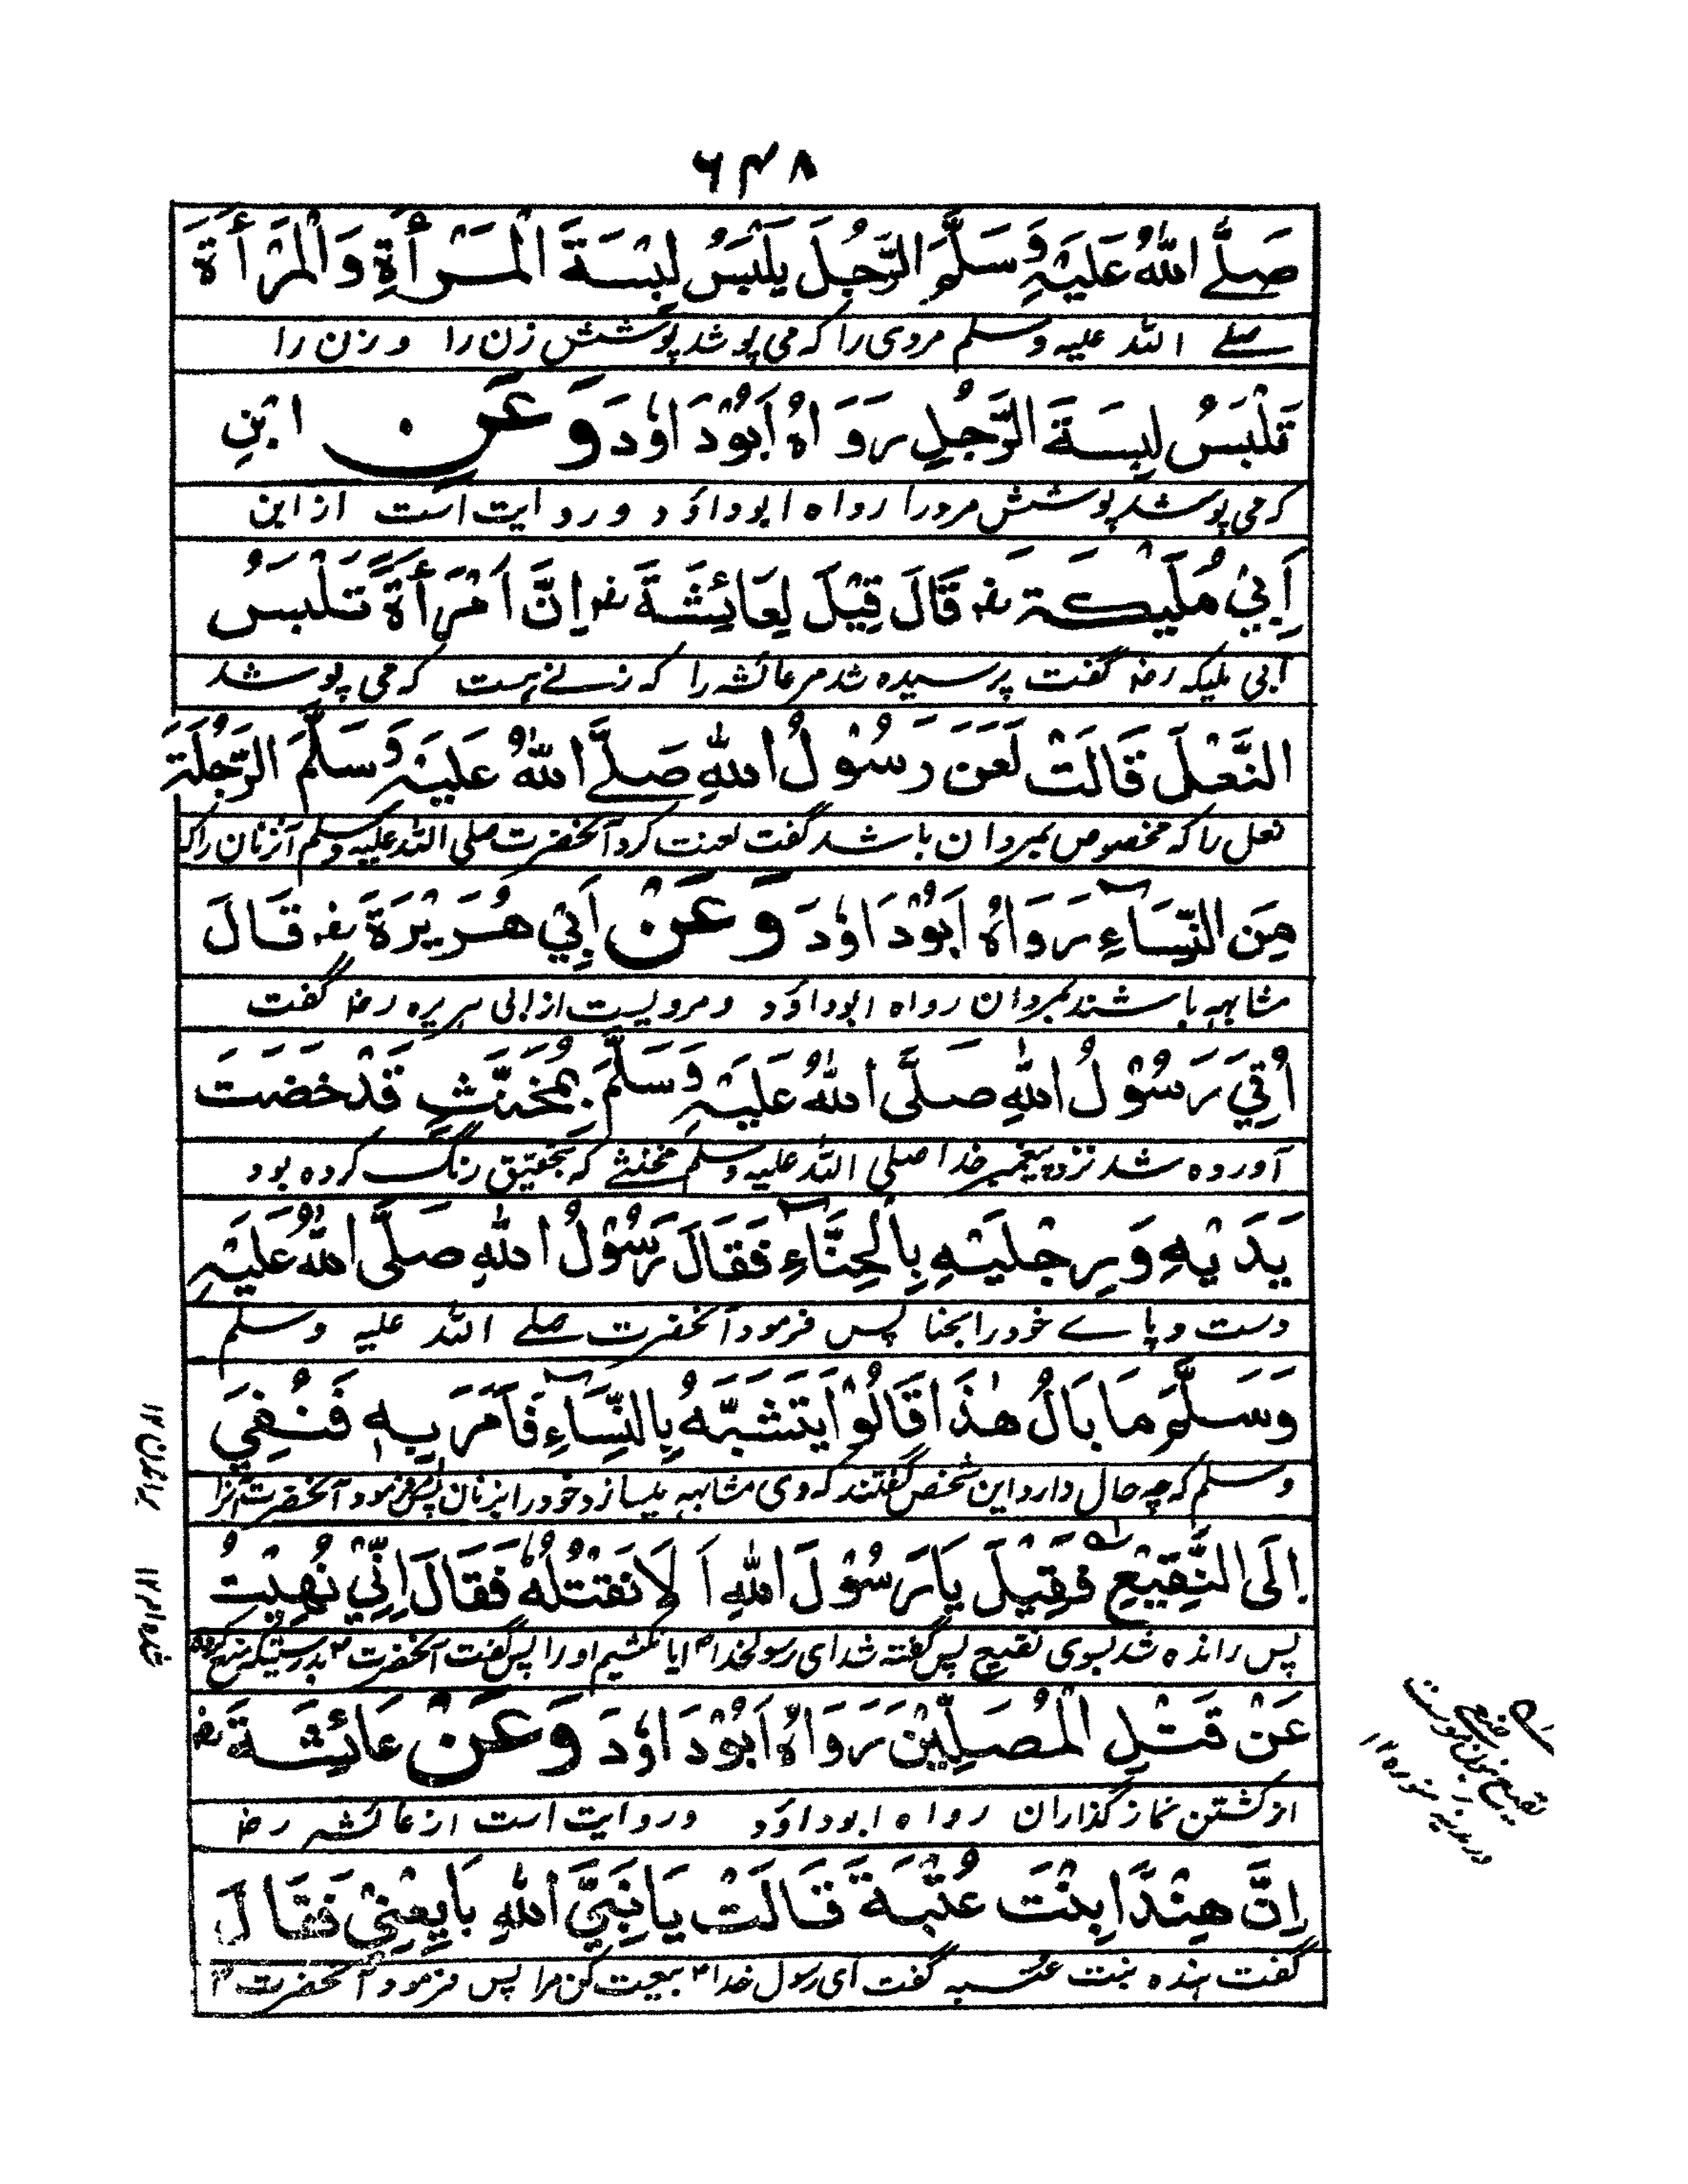 ۶۴۸
صَلَّے اللّٰهُ عَلَیْهِ وَسَلَّمَ الرَّجُلَ یَلْبَسُ لِبْسَةَ الْمَرْأَةِ وَالْمَرْأَةَ
صلے اللہ علیہ وسلم مردی را کہ می پوشد پوشش زن را و زن را
تَلْبَسُ لِبْسَةَ الرَّجُلِ رَوَاهُ اَبُوْدَاوٗدَ وَعَنِ ابْنِ
کہ می پوشد پوشش مرد را رواہ ابوداؤد و روایت است از ابن
اَبِیْ مُلَیْکَةَ رضؓ قَالَ قِیْلَ لِعَائِشَةَ رضؓ اِنَّ امْرَأَةً تَلْبَسُ
ابی ملیکہ رضؓ گفت پرسیدہ شد مر عائشہ را کہ زنے ہست کہ می پوشد
النَّعْلَ قَالَتْ لَعَنَ رَسُوْلُ اللّٰهِ صَلَّے اللّٰهُ عَلَیْهِ وَسَلَّمَ الرَّجُلَةَ
نعل را کہ مخصوص بمردان باشد گفت لعنت کرد آنحضرت صلی اللہ علیہ وسلم آنزنان را کہ
مِنَ النِّسَاءِ رَوَاهُ اَبُوْدَاوٗدَ وَعَنْ اَبِیْ هُرَیْرَةَ رضؓ قَالَ
مشابہہ باشند بمردان رواہ ابوداؤد و مرویست از ابی ہریرہ رضؓ گفت
اُتِیَ رَسُوْلُ اللّٰهِ صَلَّی اللّٰهُ عَلَیْهِ وَسَلَّمَ بِمُخَنَّثٍ قَدْ خَضَبَ
آوردہ شد نزد پیغمبر خدا صلی اللہ علیہ وسلم مخنثے کہ بتحقیق رنگ کردہ بود
یَدَیْهِ وَرِجْلَیْهِ بِالْحِنَّاءِ فَقَالَ رَسُوْلُ اللّٰهِ صَلَّی اللّٰهُ عَلَیْهِ
دست و پاے خود را بحنا پس فرمود آنحضرت صلے اللہ علیہ وسلم
وَسَلَّمَ مَا بَالُ هٰذَا قَالُوْا یَتَشَبَّهُ بِالنِّسَاءِ فَاَمَرَ بِهٖ فَنُفِیَ
وسلم کہ چہ حال دارد این شخص گفتند کہ وی مشابہہ میسازد خود را بزنان پس فرمود آنحضرت آنرا
اِلَی النَّقِیْعِ فَقِیْلَ یَا رَسُوْلَ اللّٰهِ اَلَا نَقْتُلُهٗ فَقَالَ اِنِّیْ نُهِیْتُ
پس راندہ شد بسوی نقیع پس گفتہ شد ای رسولخدا ایا نکشیم او را پس گفت آنحضرت بدرستیکہ منع کردہ
عَنْ قَتْلِ الْمُصَلِّیْنَ رَوَاهُ اَبُوْدَاوٗدَ وَعَنْ عَائِشَةَ رضؓ
از کشتن نماز گذاران رواہ ابوداؤد و روایت است از عائشہ رضؓ
اِنَّ هِنْدًا بِنْتَ عُتْبَةَ قَالَتْ یَا نَبِیَّ اللّٰهِ بَایِعْنِیْ فَقَالَ
گفت ہندہ بنت عتبہ گفت ای رسول خدا بیعت کن مرا پس فرمود آنحضرت